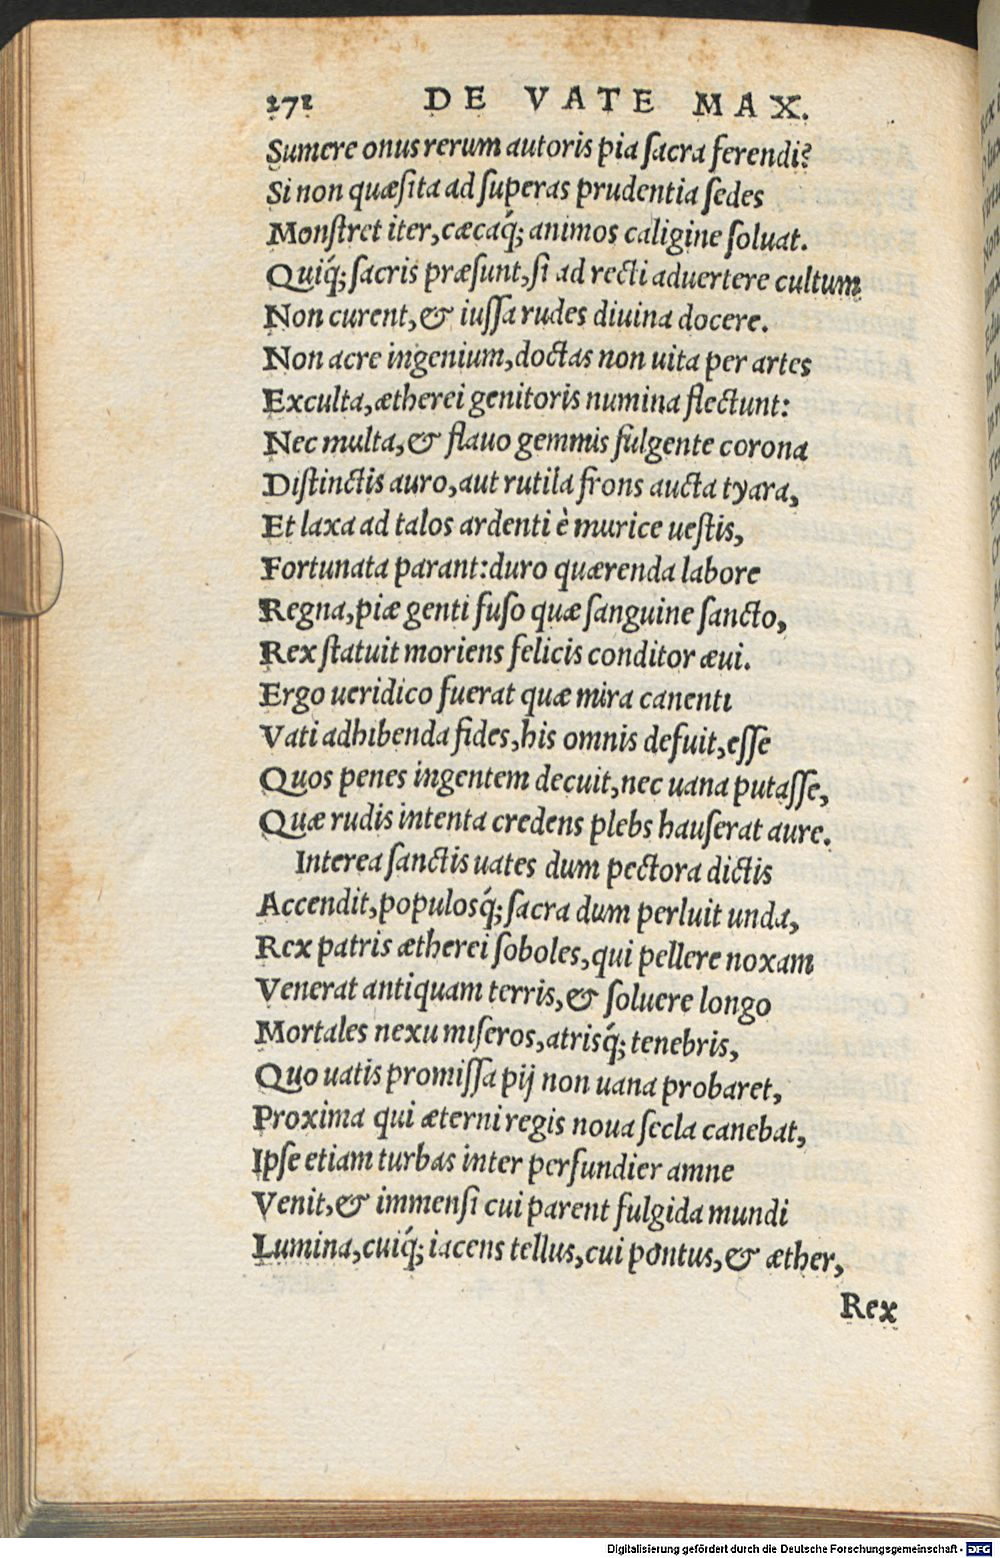 272 DE VATE MAX.
Sumere onus rerum autoris pia ſacra ferendi?
Si non quæſita ad ſuperas prudentia ſedes
Monſtret iter, cæcaq́; animos caligine ſoluat.
Quiq́; ſacris præſunt, ſi ad recti aduertere cultum
Non curent, & iuſſa rudes diuina docere.
Non acre ingenium, doctas non uita per artes
Exculta, ætherei genitoris numina flectunt:
Nec multa, & flauo gemmis fulgente corona
Diſtinctis auro, aut rutila frons aucta tyara,
Et laxa ad talos ardenti è murice ueſtis,
Fortunata parant: duro quærenda labore
Regna, piæ genti fuſo quæ ſanguine ſancto,
Rex ſtatuit moriens felicis conditor æui.
Ergo ueridico fuerat quæ mira canenti
Vati adhibenda fides, his omnis defuit, eſſe
Quos penes ingentem decuit, nec uana putaſſe,
Quæ rudis intenta credens plebs hauſerat aure.
Interea ſanctis uates dum pectora dictis
Accendit, populosq́; ſacra dum perluit unda,
Rex patris ætherei ſoboles, qui pellere noxam
Venerat antiquam terris, & ſoluere longo
Mortales nexu miſeros, atrisq́; tenebris,
Quo uatis promiſſa pij non uana probaret,
Proxima qui æterni regis noua ſecla canebat,
Ipſe etiam turbas inter perfundier amne
Venit, & immenſi cui parent fulgida mundi
Lumina, cuiq́; iacens tellus, cui pontus, & æther,
Rex
Digitalisierung gefördert durch die Deutsche Forschungsgemeinschaft - DFG